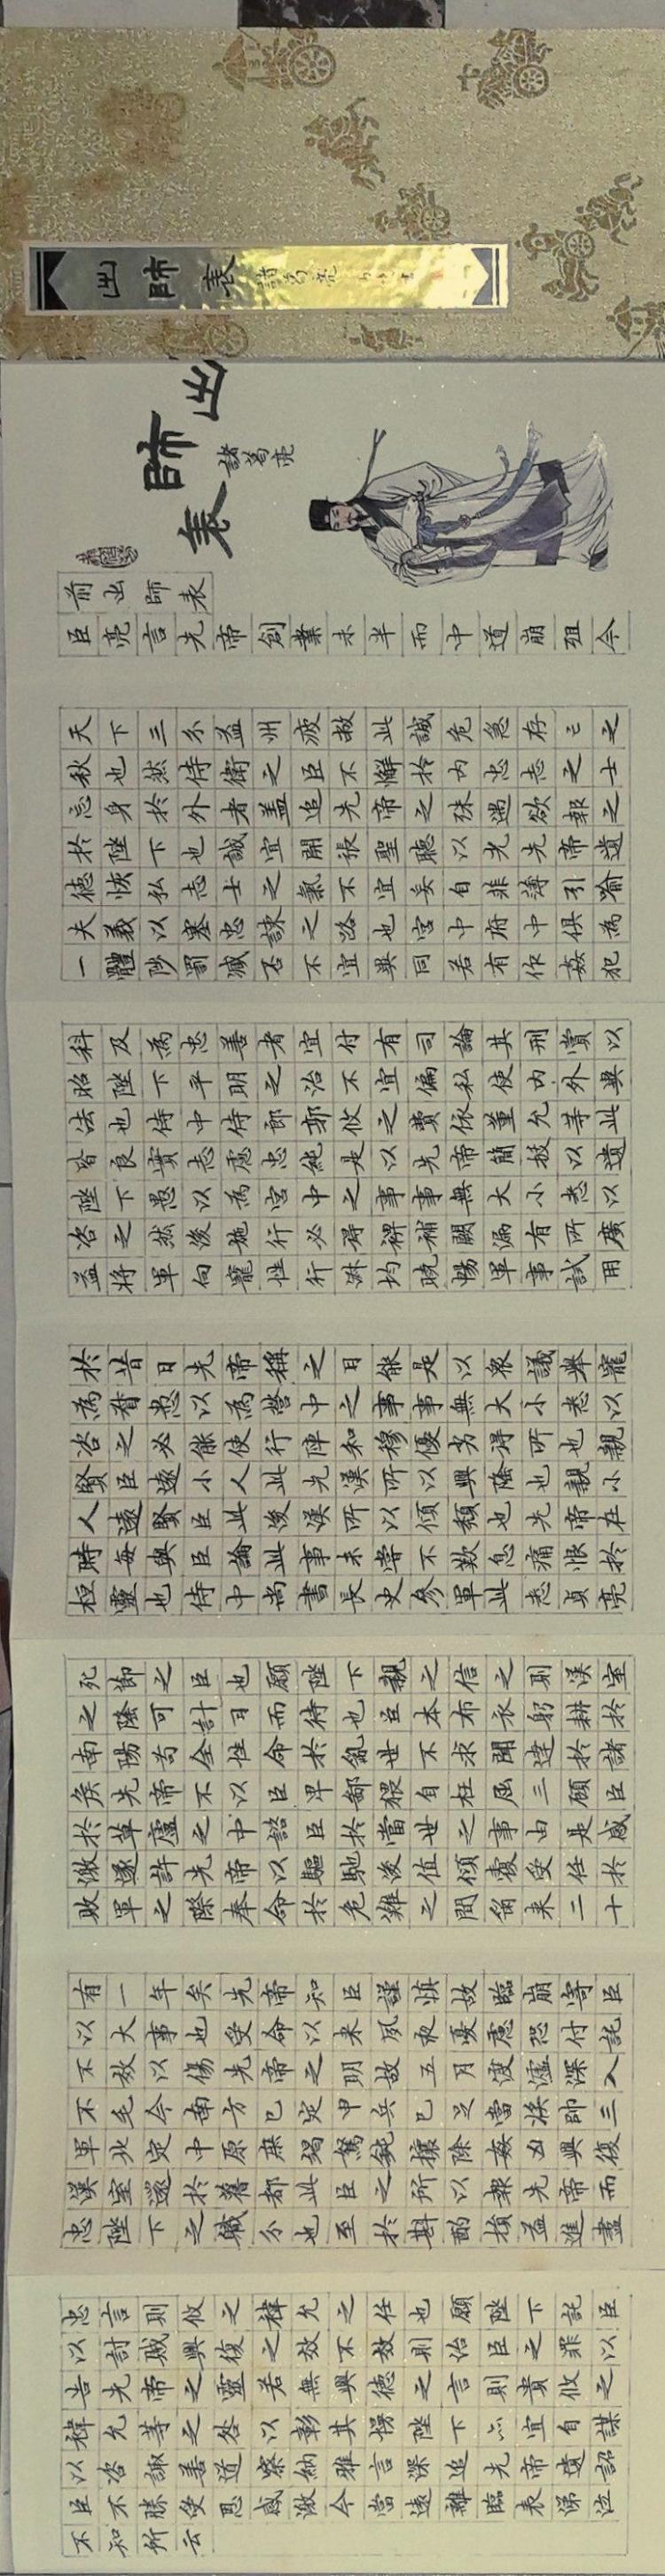 出師表 諸葛亮
出師表
諸葛亮
前出師表
臣亮言先帝創業未半而中道崩殂今
天下三分益州疲敝此誠危急存亡之
秋也然侍衛之臣不懈於内忠志之士
忘身於外者蓋追先帝之殊遇欲報之
於陛下也誠宜開張聖聽以光先帝遺
德恢弘志士之氣不宜妄自菲薄引喻
失義以塞忠諫之路也宮中府中俱為
一體陟罰臧否不宜異同若有作姦犯
科及為忠善者宜付有司論其刑賞以
昭陛下平明之治不宜偏私使内外異
法也侍中侍郎郭攸之費依董允等此
皆良實志慮忠純是以先帝簡拔以遺
陛下愚以為宮中之事事無大小悉以
咨之然後施行必得裨補闕漏有所廣
益將軍向寵性行淑均曉暢軍事試用
於昔日先帝稱之曰能是以衆議舉寵
為督愚以為營中之事事無大小悉以
咨之必能使行陣和穆優劣得所也親
賢臣遠小人此先漢所以興隆也親小
人遠賢臣此後漢所以傾頹也先帝在
時每與臣論此事未嘗不歎息痛恨於
桓靈也侍中尚書長史參軍此悉貞亮
死節之臣也願陛下親之信之則漢室
之隆可計日而待也臣本布衣躬耕於
南陽苟全性命於亂世不求聞達於諸
侯先帝不以臣卑鄙猥自枉屈三顧臣
於草廬之中諮臣於當世之事由是感
激遂許先帝以驅馳後值傾覆受任於
敗軍之際奉命於危難之間爾来二十
有一年矣先帝知臣謹慎故臨崩寄臣
以大事也受命以来夙夜憂慮恐付託
不效以傷先帝之明故五月渡瀘深入
不毛今南方已定甲兵已足當獎帥三
軍北定中原庶竭駑鈍攘除姦凶興復
漢室還於舊都此臣之所以報先帝而
忠陛下之職分也至於斟酌損益進盡
忠言則攸之禕允之任也願陛下託臣
以討賊興復之效不效則治臣之罪以
告先帝之靈若無興德之言則責攸之
禕允等之咎以彰其慢陛下亦宜自謀
以咨諏善道察納雅言深追先帝遺詔
臣不勝受恩感激今當遠離臨表涕泣
不知所云